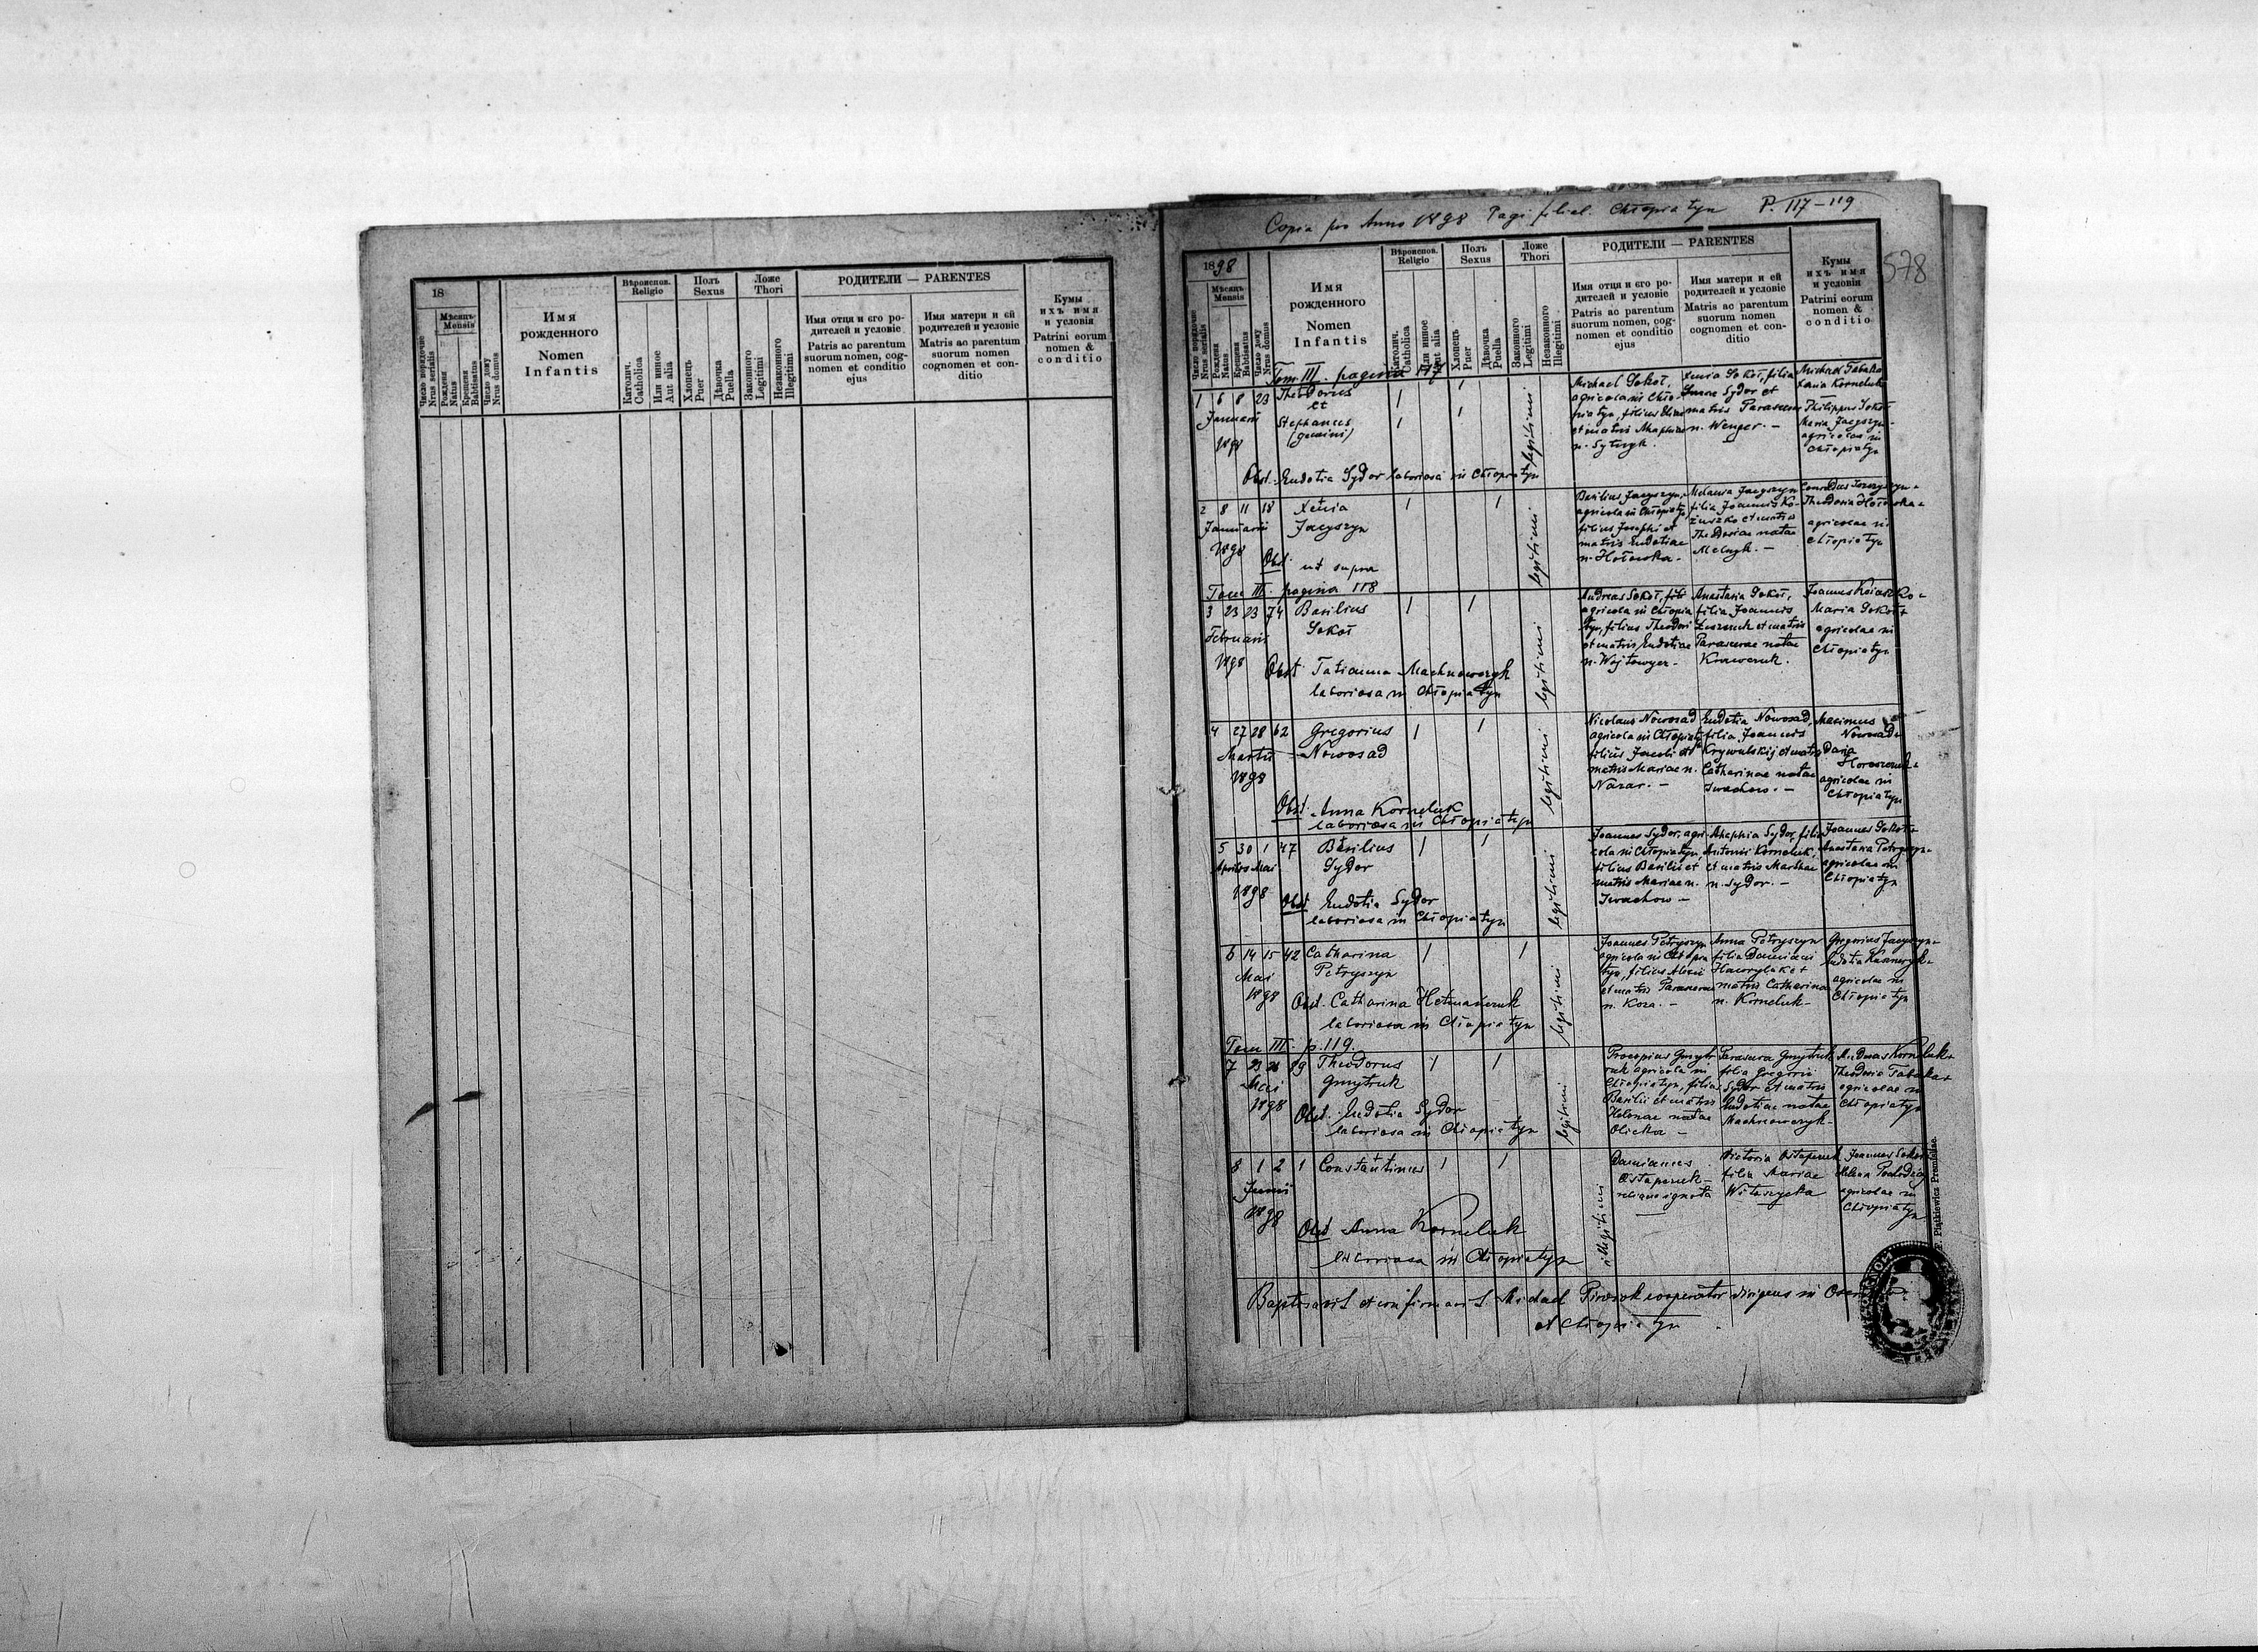 18
Мѣсяць
Mensis
Число порядочне
Nrus serialis
Рождена
Natus
Крещена
Babtisatus
Число дому
Nrus domus
Имя
рожденного
Nomen
Infantis
Вѣроиспов.
Religio
Католич.
Catholica
Или инное
Aut alia
Полъ
Sexus
Хлопець
Puer
Дѣвочка
Puella
Ложе
Thori
Законного
Legitimi
Незаконного
Illegitimi
РОДИТЕЛИ — PARENTES
Имя отця и єго ро-
дителей и условіє
Patris ac parentum
suorum nomen, cog-
nomen et conditio
ejus
Имя матери и єй
родителей и условіє
Matris ac parentum
suorum nomen
cognomen et con-
ditio
Кумы
ихъ имя
и условія
Patrini eorum
nomen &
conditio
Copia pro Anno 1898 Pagi filial. Chłopiatyn P. 117-119
578
1898
Мѣсяць
Mensis
Число порядочне
Nrus serialis
Рождена
Natus
Крещена
Babtisatus
Число дому
Nrus domus
Имя
рожденного
Nomen
Infantis
Вѣроиспов.
Religio
Католич.
Catholica
Или инное
Aut alia
Полъ
Sexus
Хлопець
Puer
Дѣвочка
Puella
Ложе
Thori
Законного
Legitimi
Незаконного
Illegitimi
РОДИТЕЛИ — PARENTES
Имя отця и єго ро-
дителей и условіє
Patris ac parentum
suorum nomen, cog-
nomen et conditio
ejus
Имя матери и єй
родителей и условіє
Matris ac parentum
suorum nomen
cognomen et con-
ditio
Кумы
ихъ имя
и условія
Patrini eorum
nomen &
conditio
Tom III. pagina 117
1 6 8 23 Theodorus
et
Januarii Stephanus
1898 (gemini)
1 1
1 1
legitimi
Michael Sokoł,
agricola in Chło-
piatyn, filius
et matris
n.
Xenia Sokoł, filia
Sydor et
matris Parascevae
n. Wenger. -
Michael Tabaka
Xenia Korneluk
Philippus Sokoł
Maria Jacyszyn
agricolae in
Chłopiatyn
Obst. Eudotia Sydor laboriosa in Chłopiatyn
2 8 11 18 Xenia
Januarii Jacyszyn
1898
Obst. ut supra
1 1
legitimi
Basilius Jacyszyn,
agricola in Chłopiatyn
filius Josephi et
matris Eudotiae
n. Hołowka -
Melania Jacyszyn
filia Joannis Ko-
żuszko et matris
Theodosiae natae
Melnyk. -
Conradus
Theodosia Hołowka
agricolae in
Chłopiatyn
Tom III. pagina 118
3 23 23 74 Basilius
Februarii Sokoł
1898
1 1
legitimi
Andreas Sokoł,
agricola in Chłopia
tyn, filius Theodori
et matris Eudotiae
n. Wojtowycz -
Anastasia Sokoł,
filia Joannis
et matris
Parascevae natae
Krawczuk.
Joannes
Maria Sokoł
agricolae in
Chłopiatyn
Obst Tatianna Machnowczyk
laboriosa in Chłopiatyn
4 27 28 62 Gregorius
Martii Nowosad
1898
1 1
legitimi
Nicolaus Nowosad
agricola in Chłopiatyn
filius Jacobi et
matris Mariae n.
Nazar. -
Eudotia Nowosad,
filia Joannis
Krywulskij et matris
Catharinae natae
Iwachow. -
Maximus
Nowosad
Daria
agricolae in
Chłopiatyn
Obst. Anna Korneluk
laboriosa in Chłopiatyn
5 30 1 47 Basilius
Aprilis Mai Sydor
1898
1 1
legitimi
Joannes Sydor, agri-
cola in Chłopiatyn,
filius Basilii et
matris Mariae n.
Iwachow -
Ahaphia Sydor, filia
Antonii Korneluk,
et matris Marthae
n. Sydor. -
Joannes Sokoł
Anastasia Petryszyn
agricolae in
Chłopiatyn
Obst. Eudotia Sydor
laboriosa in Chłopiatyn
6 14 15 42 Catharina
Mai Petryszyn
1898
1 1
legitimi
Joannes Petryszyn
agricola in Chłopia
tyn, filius Alexii
et matris Parascevae
n. Koza. -
Anna Petryszyn
filia Damiani
Hawrylak et
matris Catharina
n. Korneluk -
Gregorius Jacyszyn
Eudotia
agricolae in
Chłopiatyn
Obst. Catharina Hetmańczuk
laboriosa in Chłopiatyn
Tom III. p. 119.
7 25 26 89 Theodorus
Mai Gmytruk
1898
1 1
legitimi
Procopius Gmytr
ruk agricola in
Chłopiatyn, filius
Basilii et matris
Helenae natae
Olicka -
Parasceva Gmytruk
filia Gregorii
Sydor et matris
Eudotiae natae
Machnowczyk -
Andreas Korneluk
Theodosia Tabaka
agricolae in
Chłopiatyn
Obst. Eudotia Sydor
laboriosa in Chłopiatyn
8 1 2 1 Constantinus
Junii
1898
1 1
illegitimi
Damianus
Ostapczuk -
reliqua ignota
Victoria Ostapczuk
filia Mariae
Witoszycka
Joannes Sokoł
Helena
agricolae in
Chłopiatyn
Obst Anna Korneluk
laboriosa in Chłopiatyn
Baptisavit et confirmavit Michael cooperator dirigens in
et Chłopiatyn
F. Piątkiewicz Premisliae.